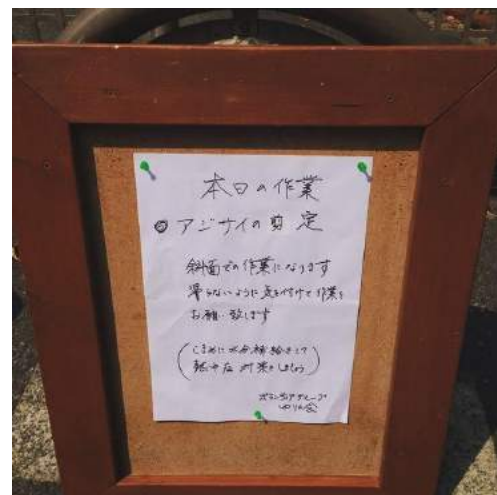 本日の作業
◎アジサイの剪定
斜面での作業になります
滑らないように気を付けて作業を
お願い致します
(こまめに水分補給をして
熱中症対策をしましょう)
ボランティアグループ